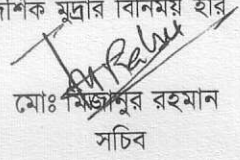 শিক মুদ্রার বিনিময় হার
মোঃ মিজানুর রহমান
সচিব